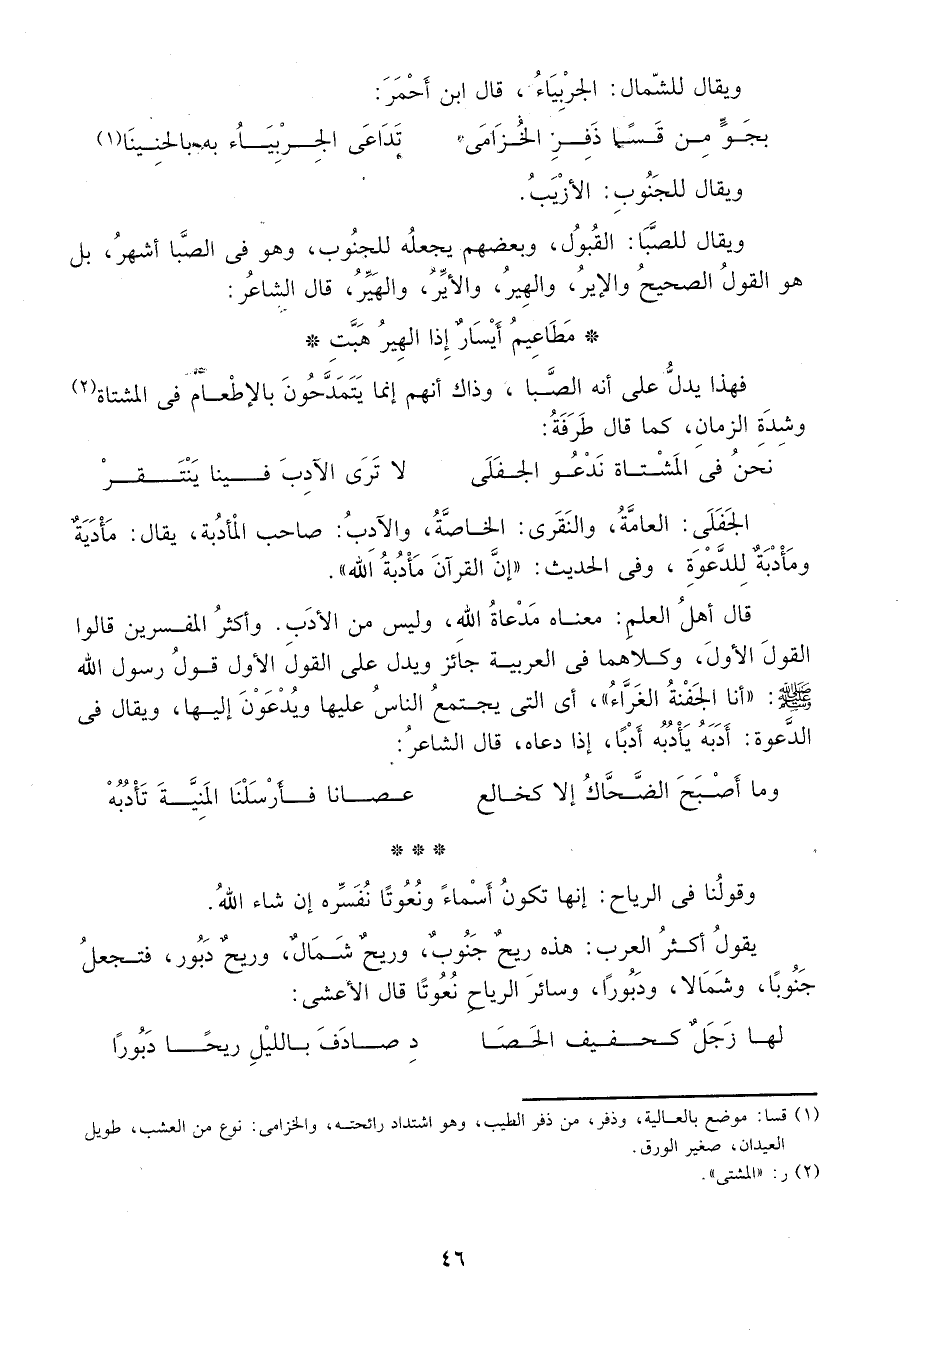 ويقال للشّمال: الجِرْبِيَاءُ، قال ابن أَحْمَرَ:
بِجَوٍّ مِـن قَـسًا ذَفِـرِ الخُـزَامَى تَدَاعَى الجِـرْبِيَـاءُ به بالحَنِينَا(١)
ويقال للجَنُوبِ: الأَزْيَبُ.
ويقال للصَّبَا: القَبُول، وبعضهم يجعلُه للجنُوب، وهو فى الصَّبا أشهرُ، بل
هو القولُ الصحيحُ والإيرُ، والهِيرُ، والأَيِّرُ، والهَيِّرُ، قال الشاعرُ:
* مَطَاعِيمُ أَيْسَارٌ إذا الهِيرُ هَبَّتِ *
فهذا يدلُّ على أنه الصَّبا، وذاك أنهم إنما يَتَمَدَّحُونَ بالإطْعامِ فى المشتاة(٢)
وشِدَةِ الزمانِ، كما قال طَرَفَةُ:
نحنُ فى المَشْتاة نَدْعُو الجفَلَى لا تَرَى الآدِبَ فينا يَنْتَقِرْ
الجَفَلَى: العامَّةُ، والنَقَرى: الخاصَّةُ، والآدِبُ: صاحب المأدُبة، يقال: مَأْدَبَةٌ
ومَأْدُبَةٌ للدَّعْوَةِ، وفى الحديث: «إنَّ القرآنَ مَأْدُبَةُ الله».
قال أهلُ العلمِ: معناه مَدْعاةُ الله، وليس من الأدَب. وأكثرُ المفسرين قالوا
القولَ الأولَ، وكلاهما فى العربية جائز ويدل على القول الأول قولُ رسول الله
ﷺ: «أنا الجَفْنةُ الغَرَّاءُ»، أى التى يجتمعُ الناسُ عليها ويُدْعَوْنَ إليها، ويقال فى
الدَّعوة: أَدَبَهُ يَأْدُبُه أَدْبًا، إذا دعاه، قال الشاعرُ:
وما أَصْبَحَ الضَّحَّاكُ إلا كخالعٍ عصانا فأَرْسَلْنَا المَنِيَّةَ تَأْدُبُهْ
* * *
وقولُنا فى الرياح: إنها تكونُ أَسْماءً ونُعُوتًا نُفَسِّره إن شاء اللهُ.
يقولُ أكثرُ العرب: هذه ريحٌ جَنُوبٌ، وريحٌ شَمالٌ، وريحٌ دَبُور، فتجعلُ
جَنُوبًا، وشَمَالا، ودَبُورًا، وسائرَ الرياحِ نُعُوتًا قال الأعشى:
لها زَجَلٌ كحفيف الحَصَا دِ صادَفَ بالليْلِ ريحًا دَبُورًا
(١) قسا: موضع بالعالية، وذفر، من ذفر الطيب، وهو اشتداد رائحته، والخزامى: نوع من العشب، طويل
العيدان، صغير الورق.
(٢) ر: «المشتى».
٤٦